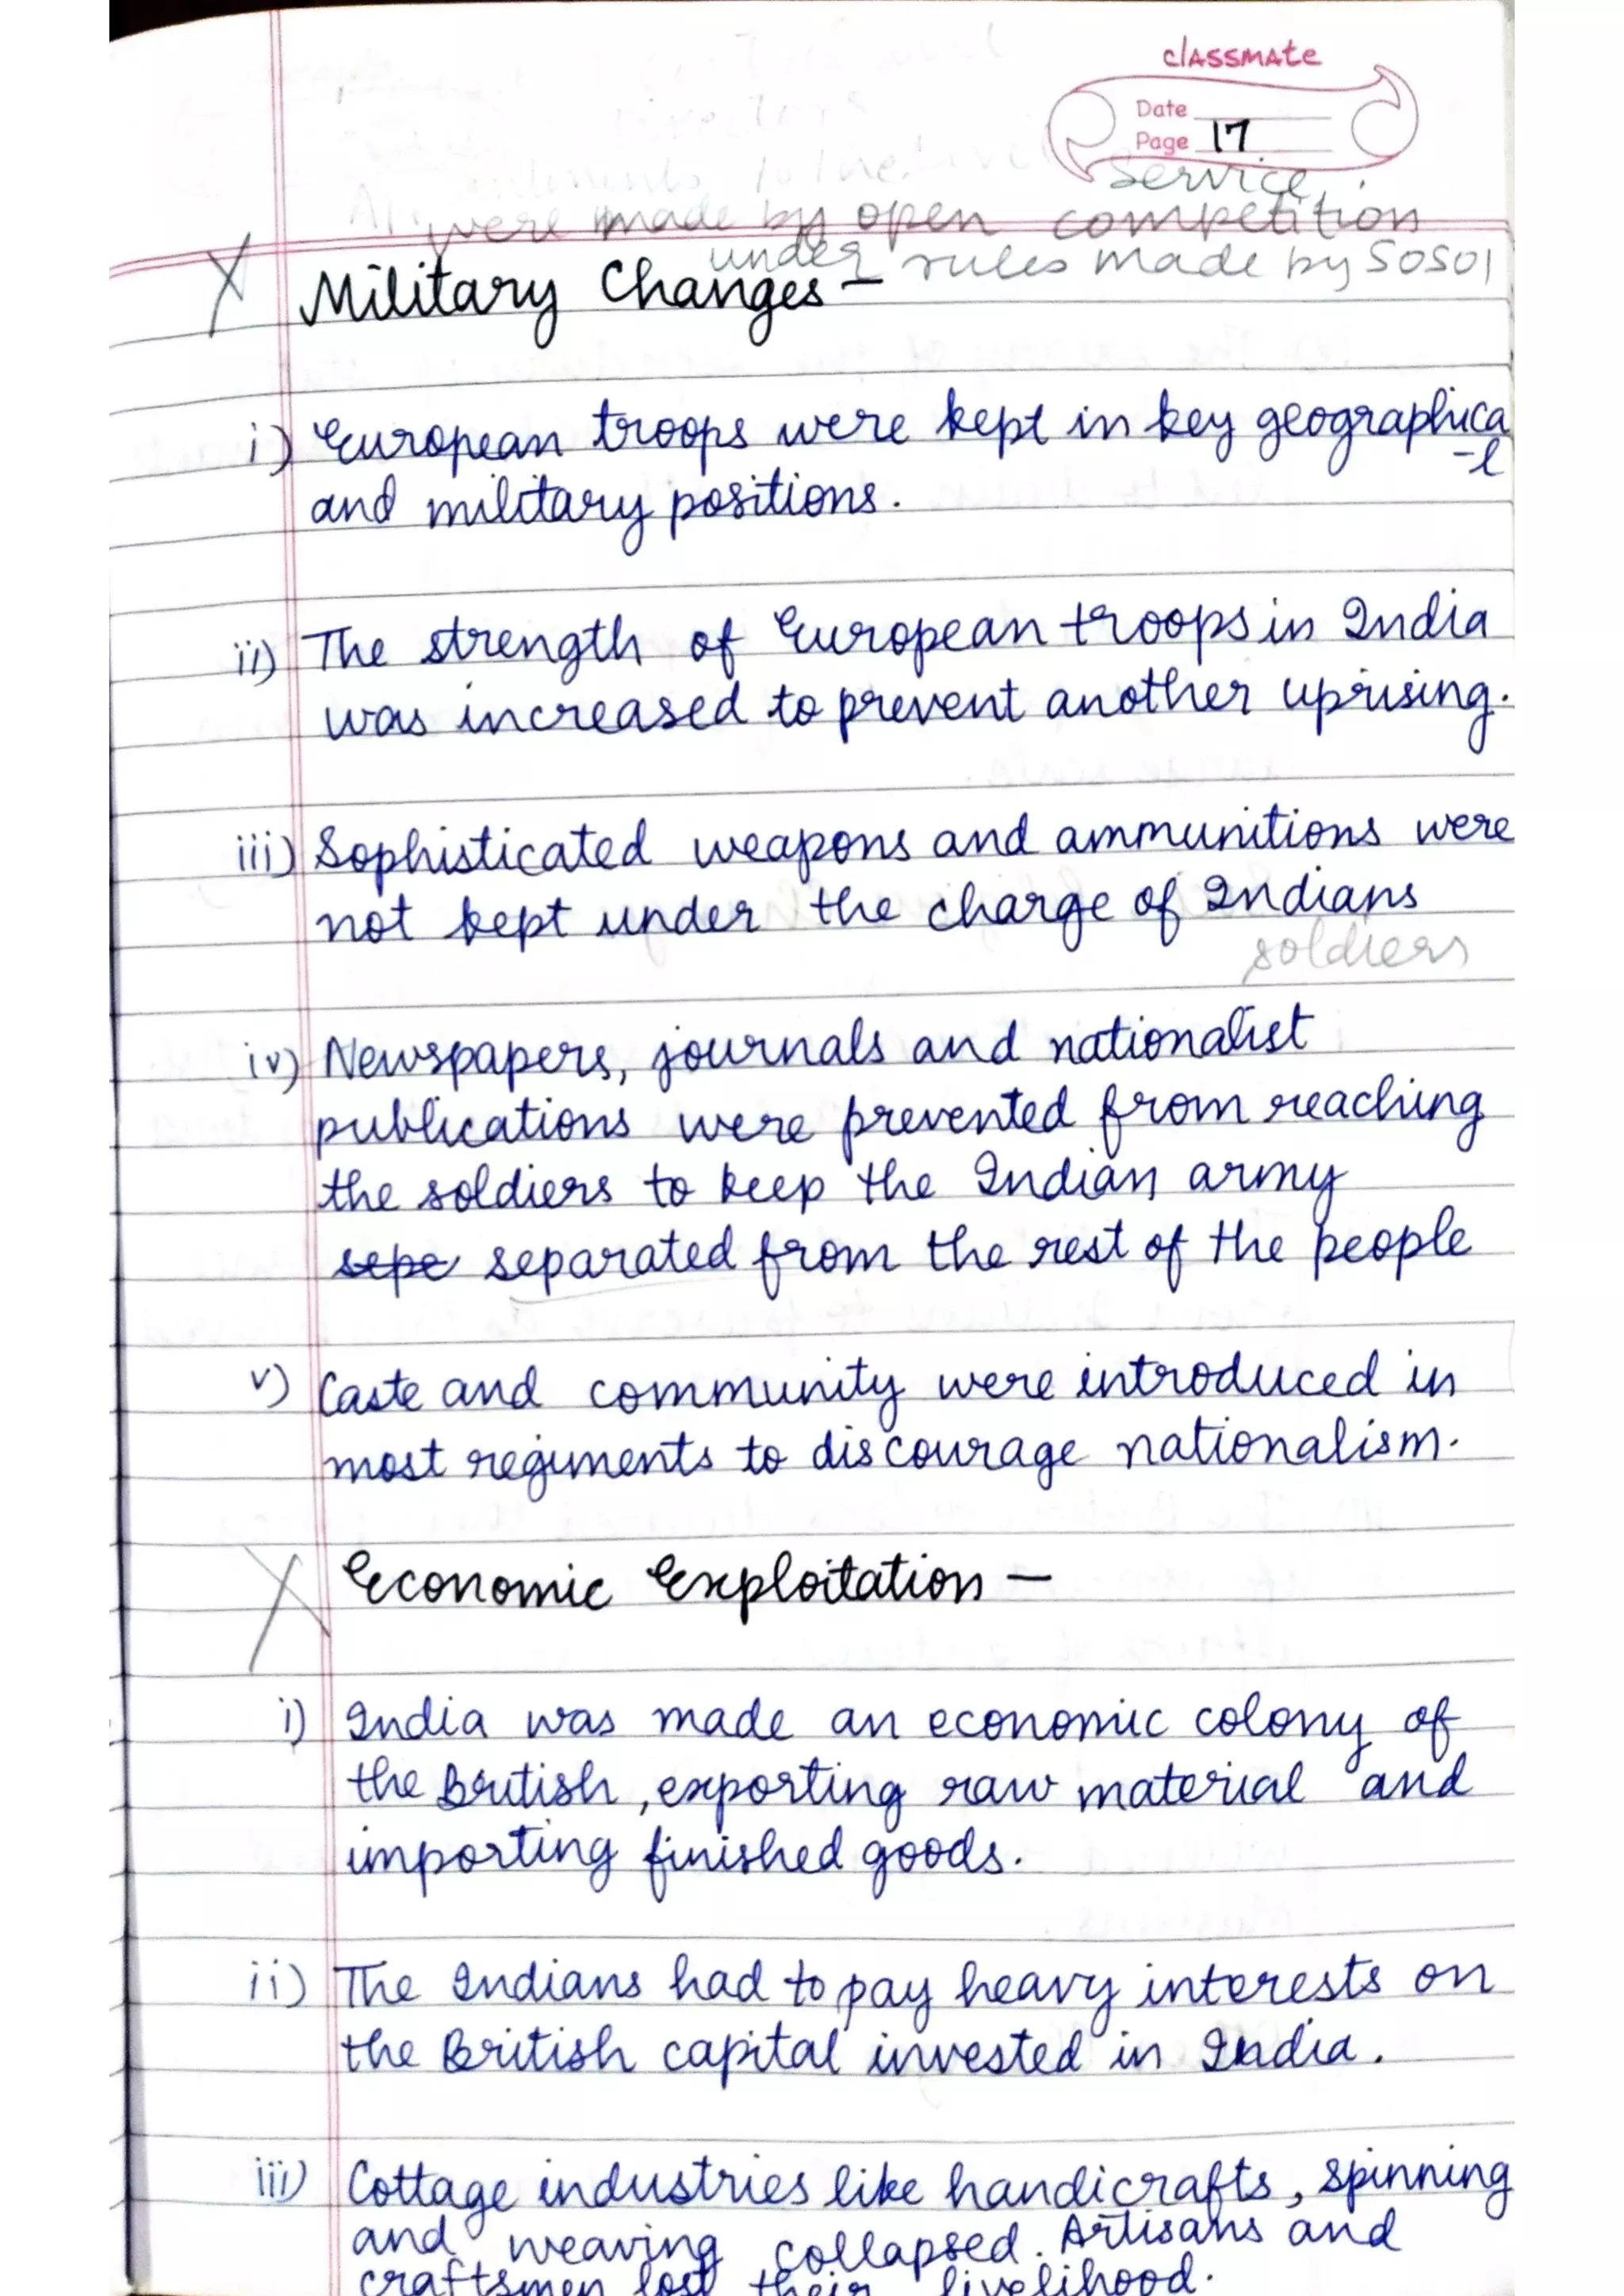 classmate
Date
Page 17
Service
were made by open competition
under rules made by SOSOI
X Military Changes –
i) European troops were kept in key geographica
-l
and military positions.
ii) The strength of European troops in India
was increased to prevent another uprising.
iii) Sophisticated weapons and ammunitions were
not kept under the charge of Indians
soldiers
iv) Newspapers, journals and nationalist
publications were prevented from reaching
the soldiers to keep the Indian army
sepe separated from the rest of the people
v) Caste and community were introduced in
most regiments to discourage nationalism.
X Economic Exploitation –
i) India was made an economic colony of
the British, exporting raw material and
importing finished goods.
ii) The Indians had to pay heavy interests on
the British capital invested in India.
iii) Cottage industries like handicrafts, spinning
and weaving collapsed. Artisans and
craftsmen lost their livelihood.